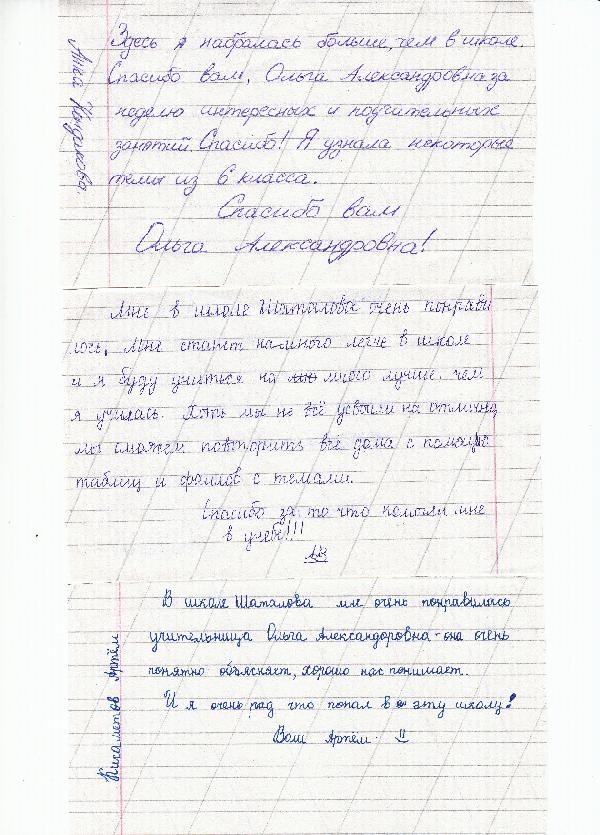 Анна
Здесь я набралась больше, чем в школе.
Спасибо вам, Ольга Александровна за
неделю интересных и поучительных
занятий. Спасибо! Я узнала некоторые
темы из 6 класса.
Спасибо вам
Ольга Александровна!
Мне в школе Шаталова очень понрави
лось. Мне станет намного легче в школе
и я буду учиться на много лучше чем
я училась. Хоть мы не всё усвоили на отлично
мы сможем повторить всё дома с помощью
таблиц и файлов с темами.
Спасибо за то что помогли мне
в учебе!!!
Кисаметов Артём
В школе Шаталова мне очень понравилась
учительница Ольга Александоровна - она очень
понятно объясняет, хорошо нас понимает.
И я очень рад что попал в эту школу!
Ваш Артём.